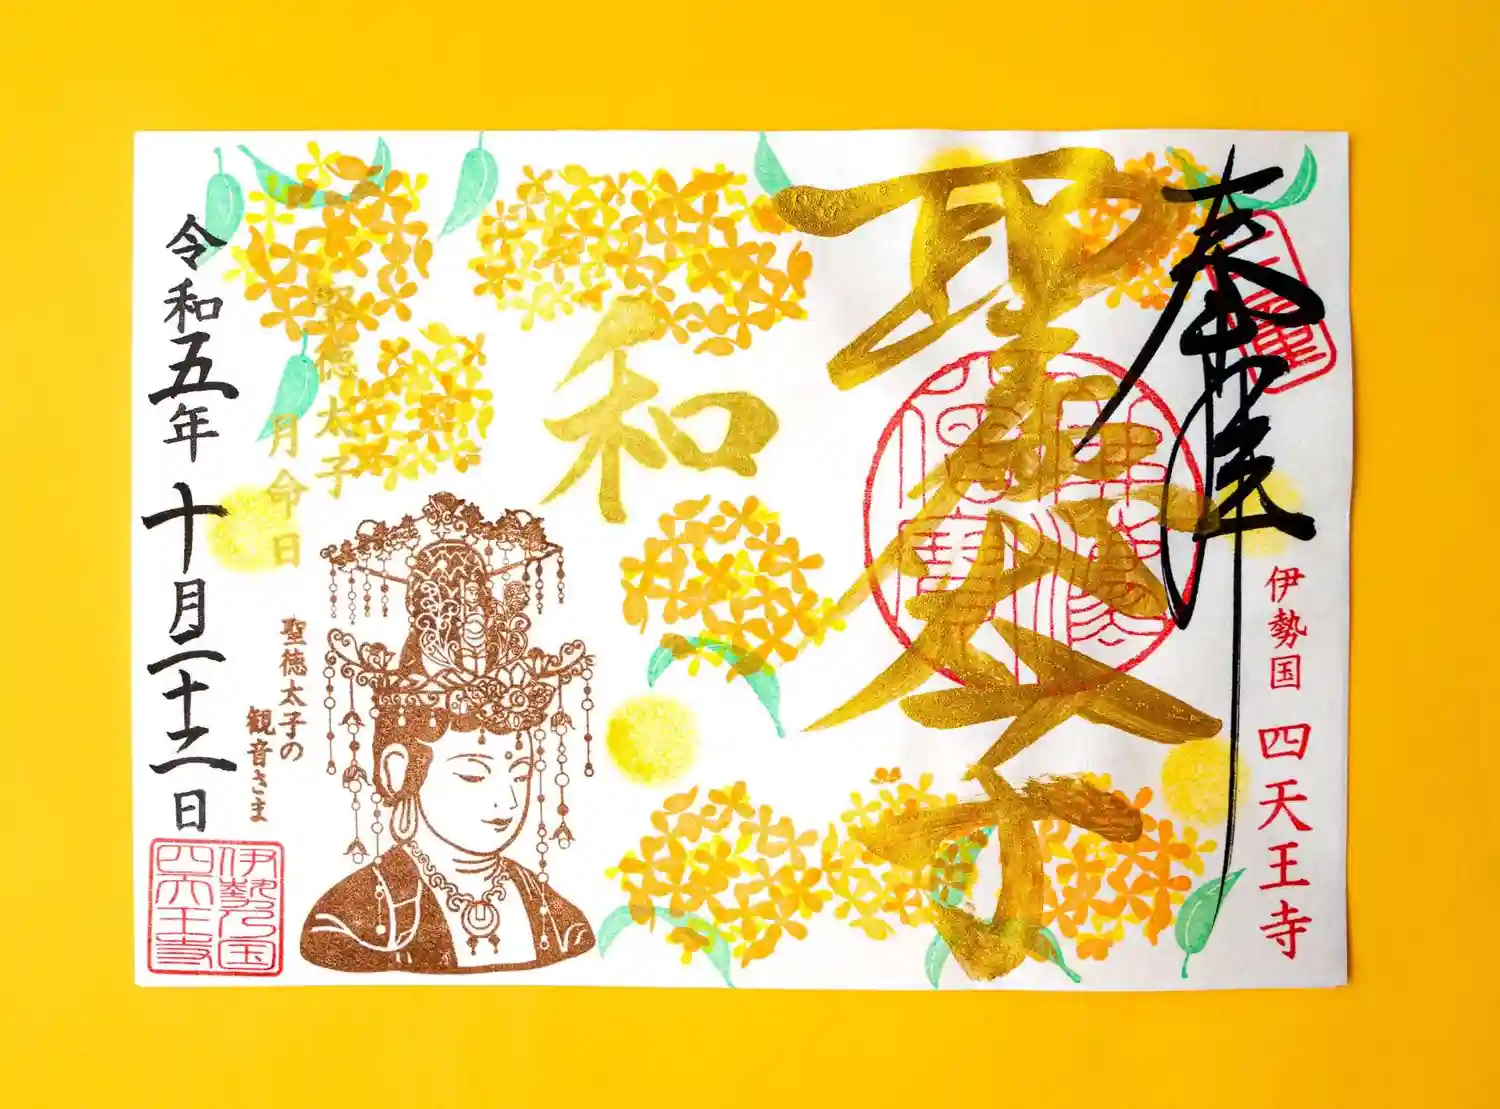 奉拝
伊勢国 四天王寺
聖徳太子
和
聖徳太子
月命日
聖徳太子の
観音さま
令和五年十月二十二日
伊勢乃国
四天王寺